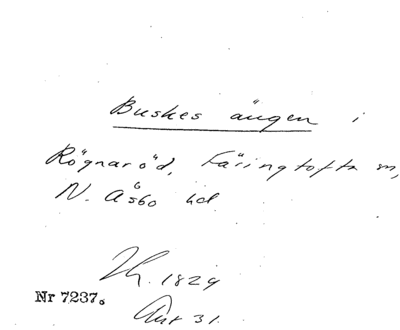 Buskes ängen i
Rögnaröd, Färingtofta sn,
N. Åsbo hd
1829
Nr 7237.
Akt 31.